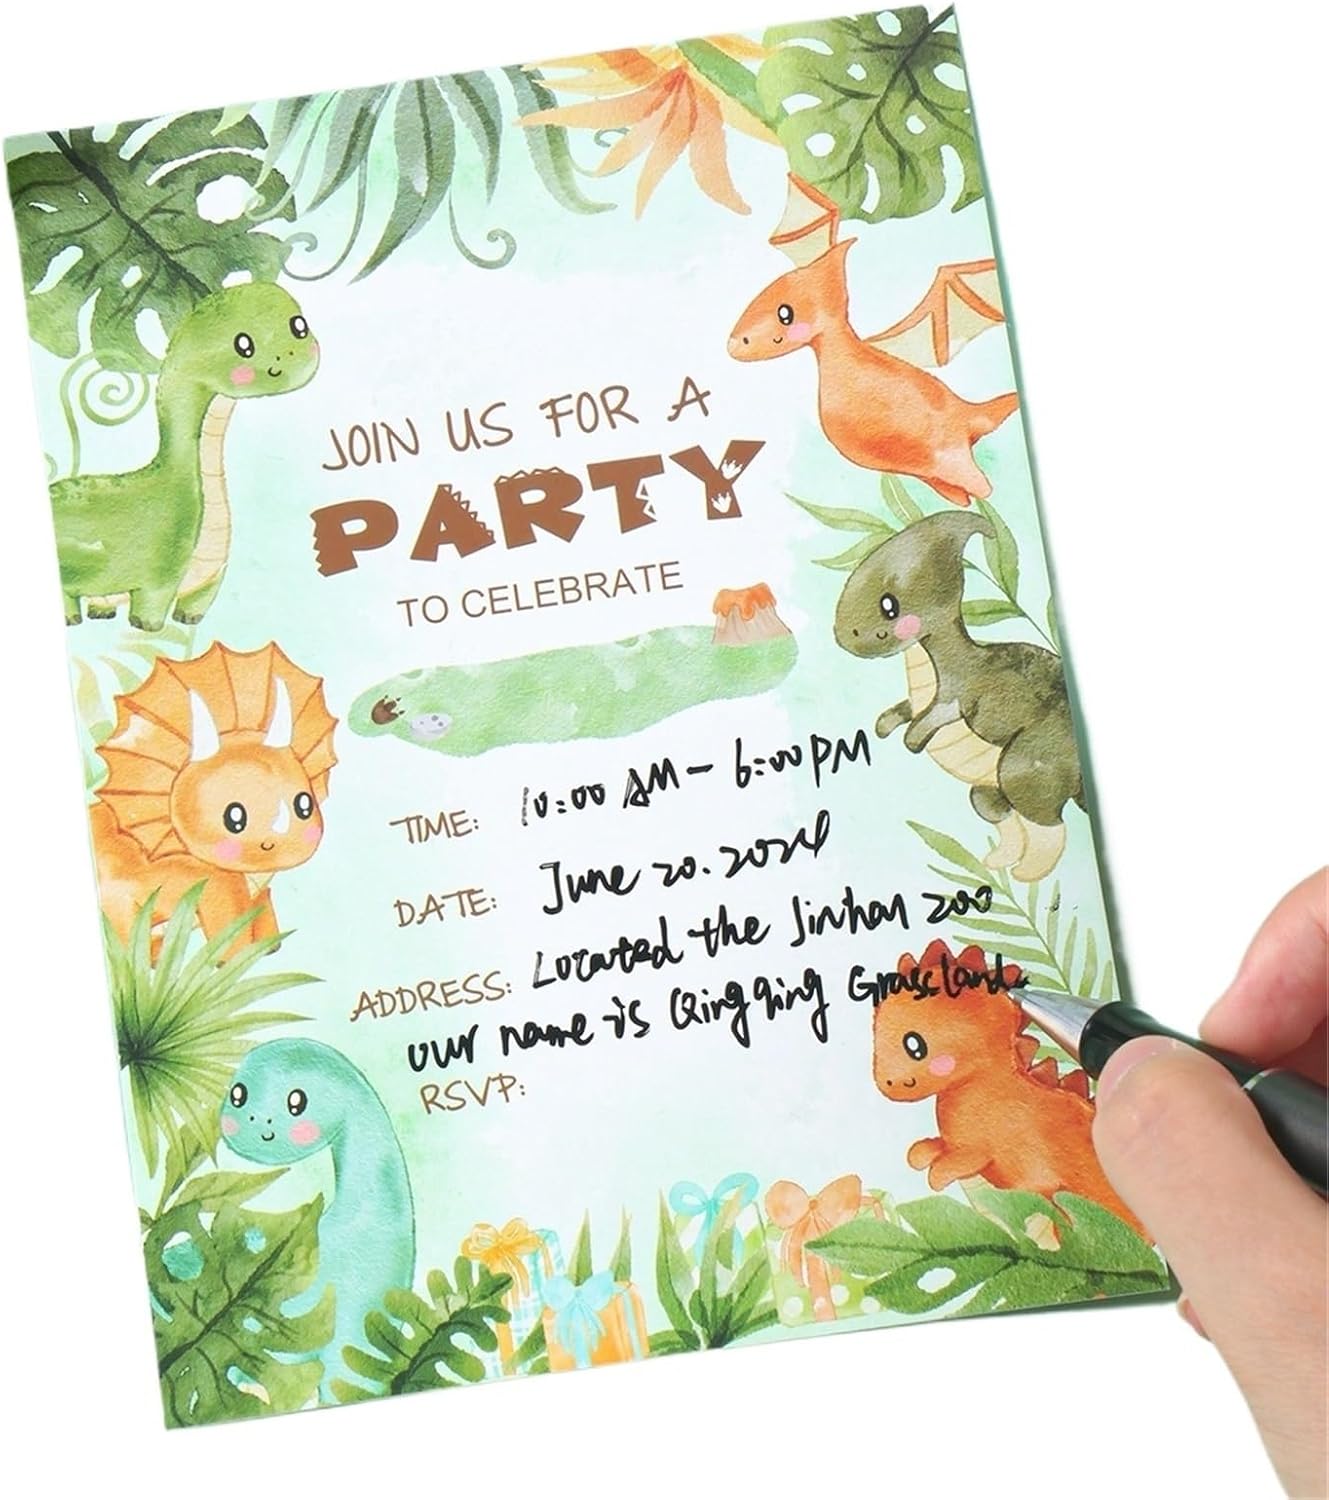 JOIN US FOR A
PARTY
TO CELEBRATE
TIME: 10:00 AM - 6:00 PM
DATE: June 20.2024
ADDRESS: Located the Jinhan zoo
our name is Qingqing Grassland
RSVP: